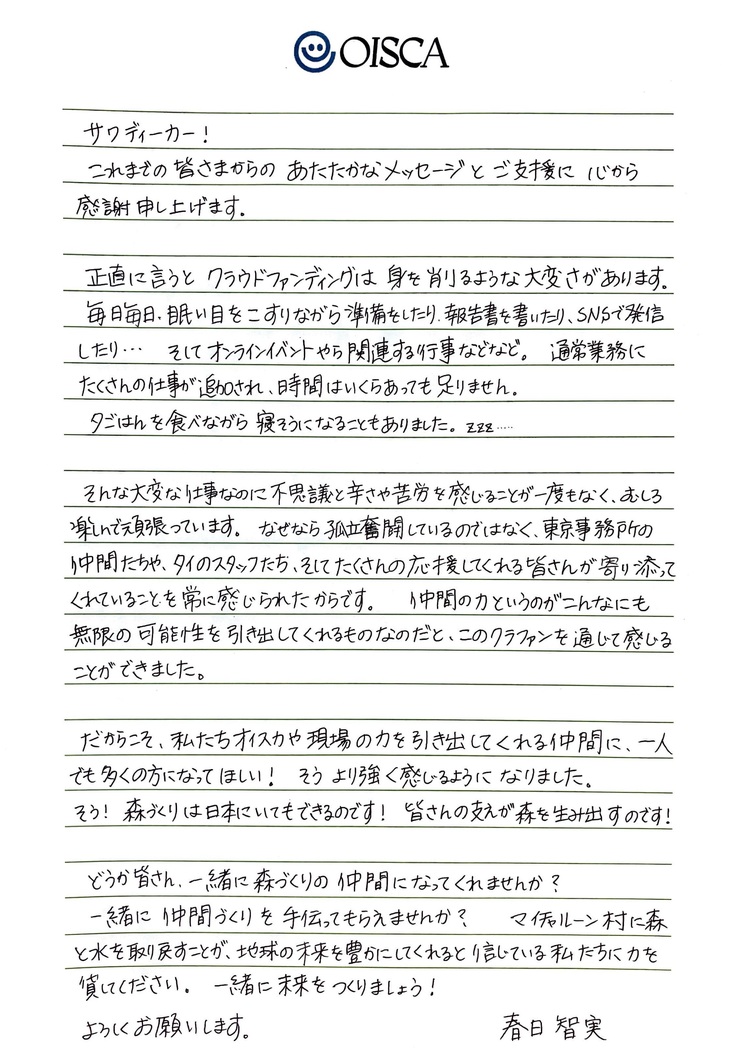 OISCA
サワディーカー!
これまでの皆さまからの あたたかなメッセージと ご支援に 心から
感謝申し上げます。
正直に言うと クラウドファンディングは 身を削りるような大変さがあります。
毎日毎日、眠い目をこすりながら準備をしたり、報告書を書いたり、SNSで発信
したり… そしてオンラインイベントやら関連する行事などなど。 通常業務に
たくさんの仕事が追加され、時間はいくらあっても足りません。
夕ごはんを食べながら 寝そうになることもありました。zzz……
そんな大変な仕事なのに不思議と辛さや苦労を感じることが一度もなく、むしろ
楽しんで頑張っています。 なぜなら孤立奮闘しているのではなく、東京事務所の
仲間たちや、タイのスタッフたち、そしてたくさんの応援してくれる皆さんが寄り添って
くれていることを常に感じられたからです。 仲間の力というのがこんなにも
無限の可能性を引き出してくれるものなのだと、このクラファンを通じて感じる
ことができました。
だからこそ、私たちオイスカや現場の力を引き出してくれる仲間に、一人
でも多くの方になってほしい! そう より強く感じるように なりました。
そう! 森づくりは日本にいてもできるのです! 皆さんの支えが森を生み出すのです!
どうか皆さん、一緒に森づくりの 仲間になってくれませんか?
一緒に 仲間づくりを手伝ってもらえませんか? マイチャルーン村に森
と水を取り戻すことが、地球の未来を豊かにしてくれると信じている私たちに力を
貸してください。 一緒に未来をつくりましょう!
よろしくお願いします。 春日 智実